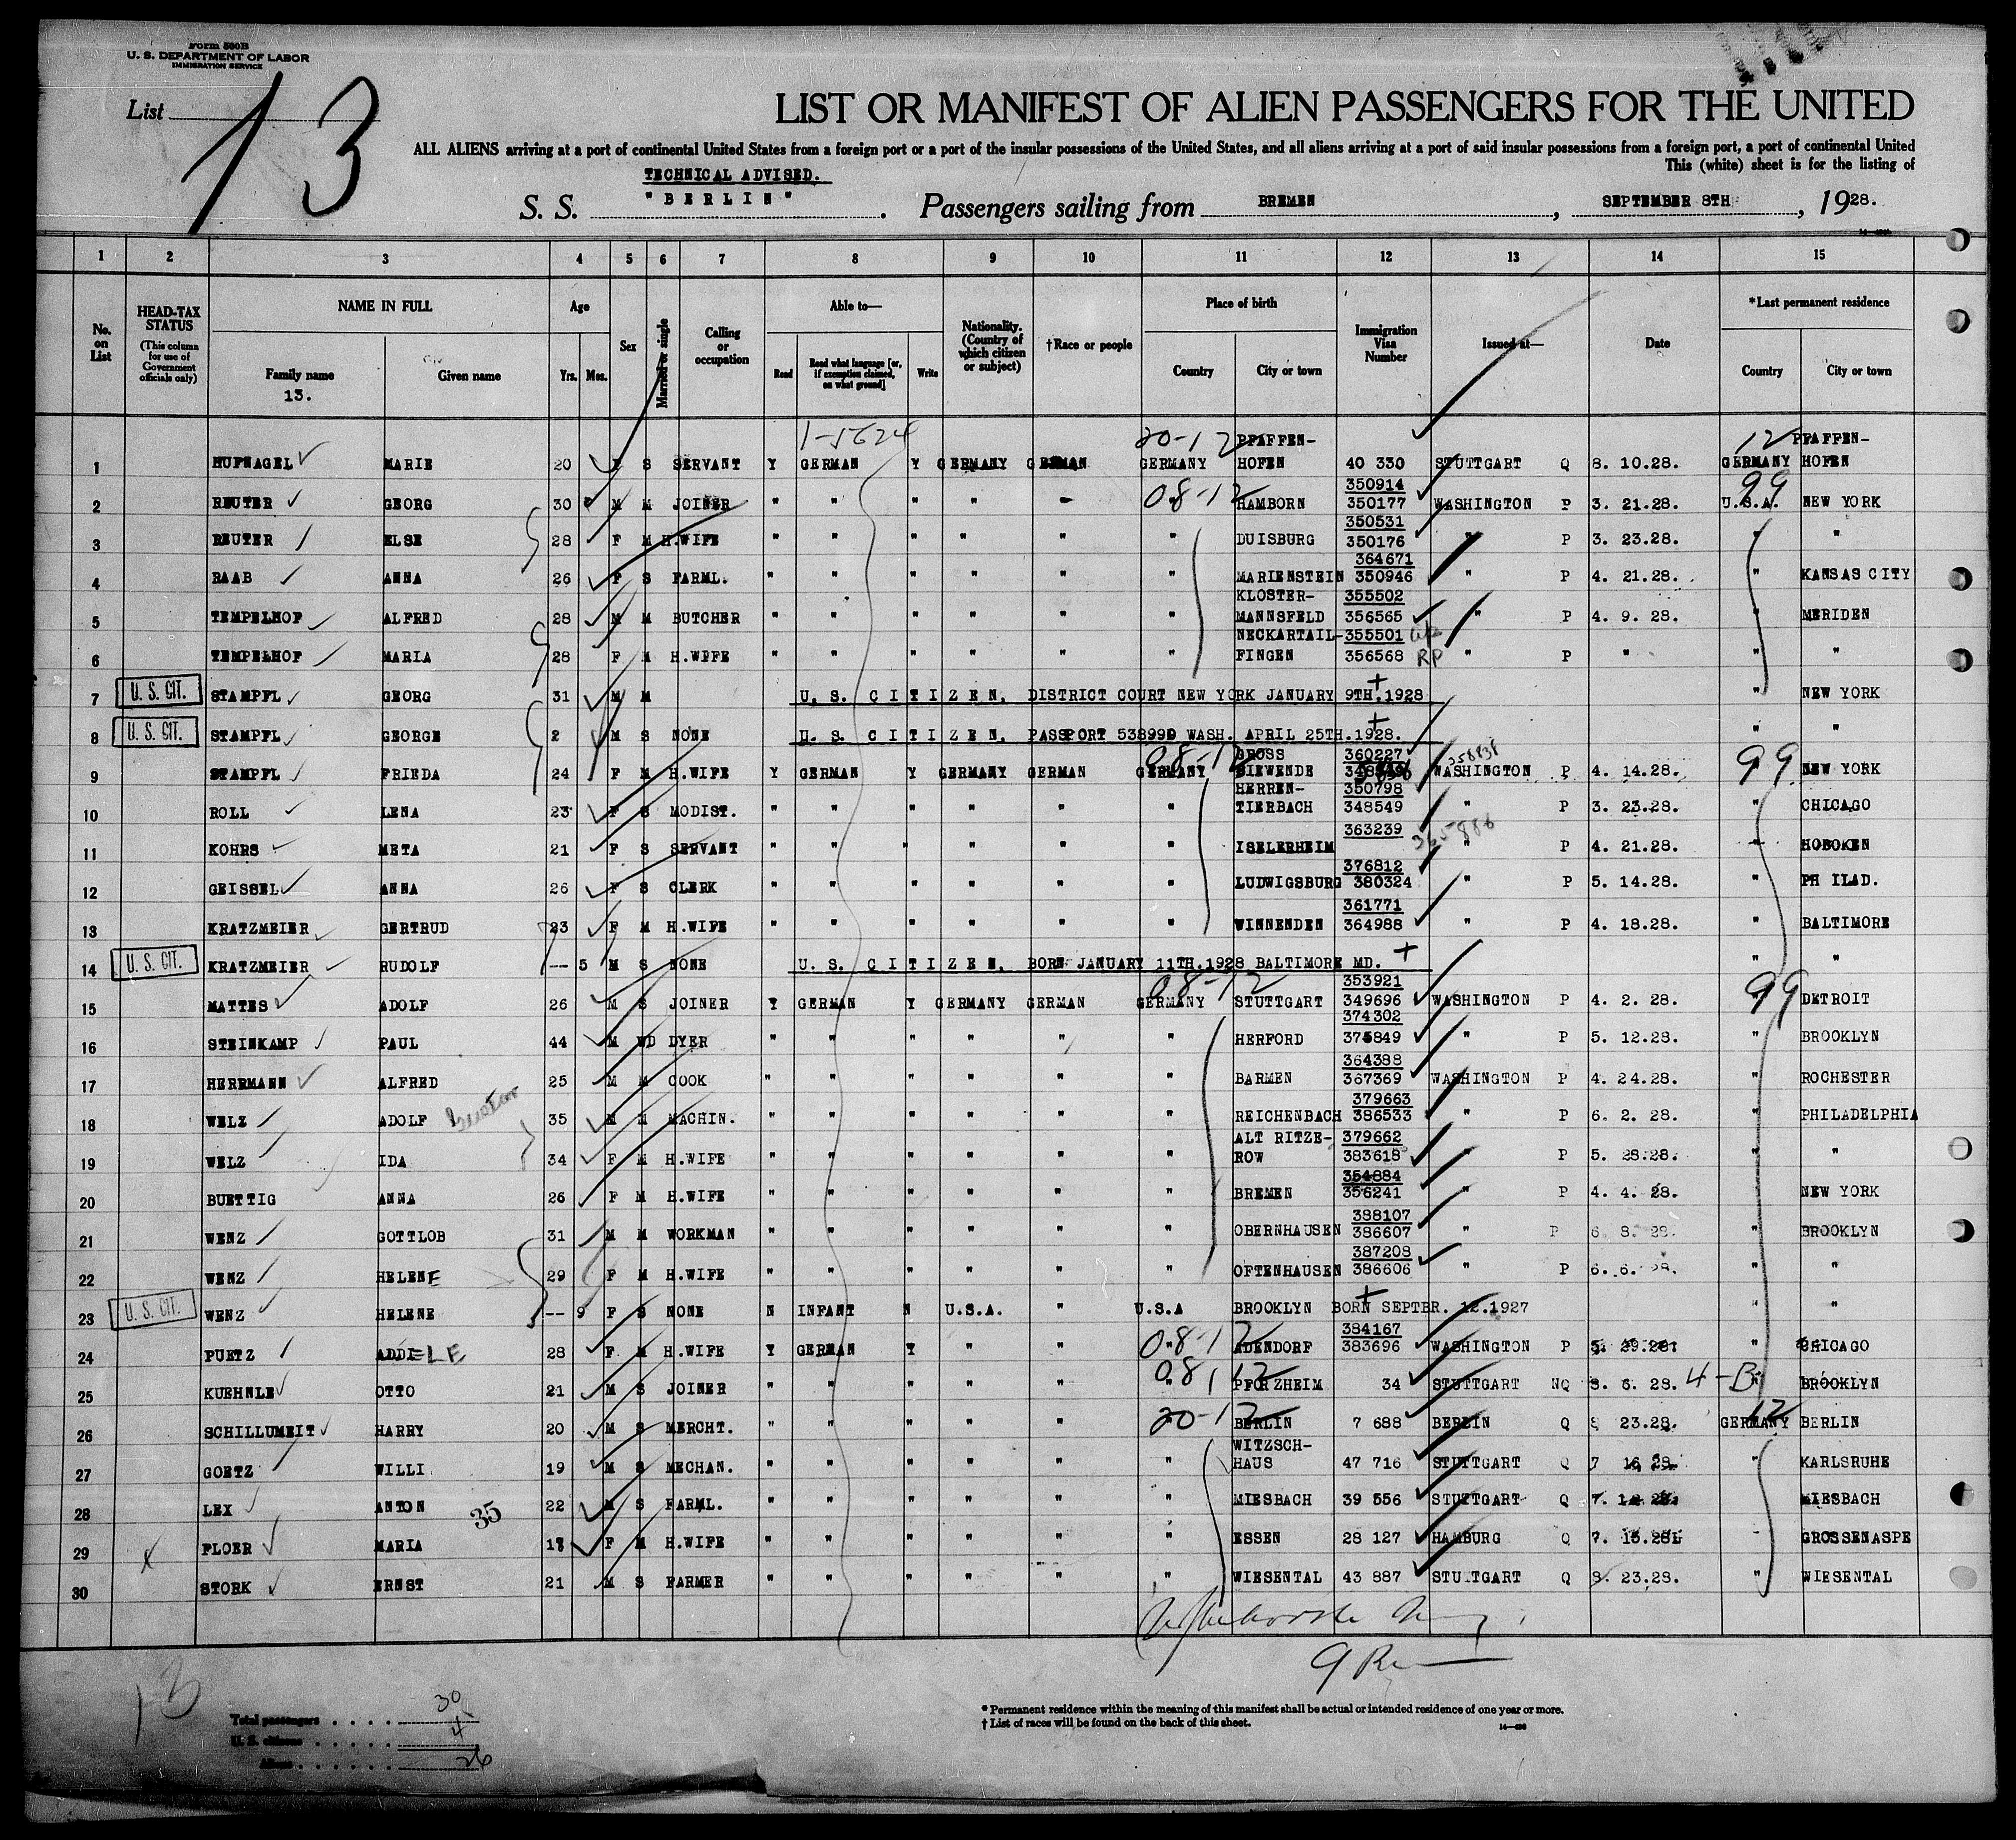 Form 500B
U. S. DEPARTMENT OF LABOR
IMMIGRATION SERVICE
List 13
LIST OR MANIFEST OF ALIEN PASSENGERS FOR THE UNITED
ALL ALIENS arriving at a port of continental United States from a foreign port or a port of the insular possessions of the United States, and all aliens arriving at a port of said insular possessions from a foreign port, a port of continental United
This (white) sheet is for the listing of
TECHNICAL ADVISED.
S. S. "BERLIN". Passengers sailing from BREMEN, SEPTEMBER 8TH, 1928.
1 2 3 4 5 6 7 8 9 10 11 12 13 14 15
No. on List
HEAD-TAX STATUS
(This column for use of Government officials only)
NAME IN FULL
Family name Given name
13.
Age
Yrs. Mos.
Sex
Married or single
Calling or occupation
Able to—
Read
Read what language [or, if exemption claimed, on what ground]
Write
Nationality. (Country of which citizen or subject)
†Race or people
Place of birth
Country City or town
Immigration Visa Number
Issued at—
Date
*Last permanent residence
Country City or town
1-5624 20-12 PFAFFEN- 12 PFAFFEN-
1 HUFNAGEL MARIE 20 F S SERVANT Y GERMAN Y GERMANY GERMAN GERMANY HOFEN 40 330 STUTTGART Q 8. 10.28. GERMANY HOFEN
350914 99
2 REUTER GEORG 30 M M JOINER " " " " " 08-12 HAMBORN 350177 WASHINGTON P 3. 21.28. U.S.A. NEW YORK
350531
3 REUTER ELSE 28 F M H.WIFE " " " " " " DUISBURG 350176 " P 3. 23.28. " "
364671
4 RAAB ANNA 26 F S FARML. " " " " " " MARIENSTEIN 350946 " P 4. 21.28. " KANSAS CITY
KLOSTER- 355502
5 TEMPELHOF ALFRED 28 M M BUTCHER " " " " " " MANNSFELD 356565 " P 4. 9. 28. " MERIDEN
NECKARTAIL- 355501
6 TEMPELHOF MARIA 28 F M H.WIFE " " " " " " FINGEN 356568 RP " P " " "
7 U. S. CIT. STAMPFL GEORG 31 M M U. S. CITIZEN, DISTRICT COURT NEW YORK JANUARY 9TH.1928 " NEW YORK
8 U. S. CIT. STAMPFL GEORGE 2 M S NONE U. S. CITIZEN, PASSPORT 538999 WASH. APRIL 25TH.1928. " "
08-12 GROSS 360227 358838
9 STAMPFL FRIEDA 24 F M H.WIFE Y GERMAN Y GERMANY GERMAN GERMANY BIEWENDE WASHINGTON P 4. 14.28. 99 NEW YORK
HERREN- 350798
10 ROLL LENA 23 F S MODIST. " " " " " " TIERBACH 348549 " P 3. 23.28. " CHICAGO
363239 365886
11 KOHRS META 21 F S SERVANT " " " " " " ISELERHEIM " P 4. 21.28. " HOBOKEN
376812
12 GEISSEL ANNA 26 F S CLERK " " " " " " LUDWIGSBURG 380324 " P 5. 14.28. " PH ILAD.
361771
13 KRATZMEIER GERTRUD 23 F M H.WIFE " " " " " " WINNENDEN 364988 " P 4. 18.28. " BALTIMORE
14 U. S. CIT. KRATZMEIER RUDOLF -- 5 M S NONE U. S. CITIZEN, BORN JANUARY 11TH.1928 BALTIMORE MD. " "
08-12 353921 99
15 MATTES ADOLF 26 M S JOINER Y GERMAN Y GERMANY GERMAN GERMANY STUTTGART 349696 WASHINGTON P 4. 2. 28. " DETROIT
374302
16 STEINKAMP PAUL 44 M WD DYER " " " " " " HERFORD 375849 " P 5. 12.28. " BROOKLYN
364388
17 HERRMANN ALFRED 25 M M COOK " " " " " " BARMEN 367369 WASHINGTON P 4. 24.28. " ROCHESTER
379663
18 WELZ ADOLF 35 M M MACHIN. " " " " " " REICHENBACH 386533 " P 6. 2. 28. " PHILADELPHIA
ALT RITZE- 379662
19 WELZ IDA 34 F M H.WIFE " " " " " " ROW 383618 " P 5. 28.28. " "
354884
20 BUETTIG ANNA 26 F M H.WIFE " " " " " " BREMEN 356241 " P 4. 4. 28. " NEW YORK
388107
21 WENZ GOTTLOB 31 M M WORKMAN " " " " " " OBERNHAUSEN 386607 " P 6. 8. 28. " BROOKLYN
387208
22 WENZ HELENE 29 F M H.WIFE " " " " " " OFTENHAUSEN 386606 " P 6. 6. 28. " "
23 U. S. CIT. WENZ HELENE -- 9 F S NONE N INFANT N U.S.A. " U.S.A BROOKLYN BORN SEPTBR. 12.1927 " "
384167
24 PUETZ ADDELE 28 F M H.WIFE Y GERMAN Y " " 08-12 ADENDORF 383696 WASHINGTON P 5. 29.28. " CHICAGO
25 KUEHNLE OTTO 21 M S JOINER " " " " " 08-12 PFORZHEIM 34 STUTTGART NQ 8. 6. 28. 4-B " BROOKLYN
26 SCHILLUMEIT HARRY 20 M S MERCHT. " " " " " 20-12 BERLIN 7 688 BERLIN Q 8 23.28. GERMANY 12 BERLIN
WITZSCH-
27 GOETZ WILLI 19 M S MECHAN. " " " " " " HAUS 47 716 STUTTGART Q 7 16 28. " KARLSRUHE
28 LEX ANTON 22 M S FARML. " " " " " " MIESBACH 39 556 STUTTGART Q 7. " MIESBACH
35
29 X FLOER MARIA F M H.WIFE " " " " " " ESSEN 28 127 HAMBURG Q 7. GROSSENASPE
30 STORK ERNST 21 M S FARMER " " " " " " WIESENTAL 43 887 STUTTGART Q 8. 23.28. " WIESENTAL
13
Total passengers . . . . 30
U. S. citizens . . . . . 4
Aliens . . . . . . 26
* Permanent residence within the meaning of this manifest shall be actual or intended residence of one year or more.
† List of races will be found on the back of this sheet.